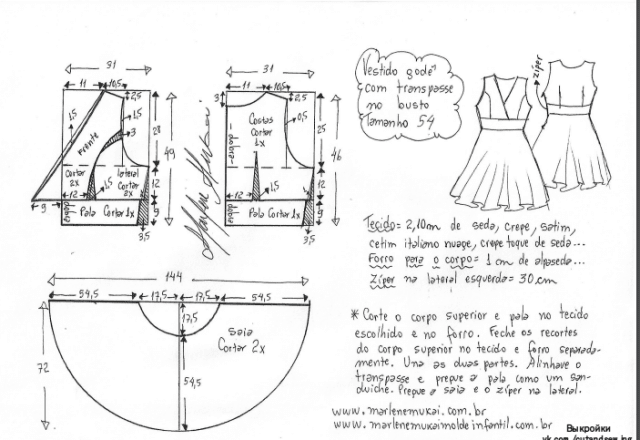 31
11 10,5
2,5
1,5
1,5
3
Frente
28
49
Cortar 2x
lateral Cortar 2x
12
12
1,5
9
dobra
Pala Cortar 1x
9
3,5
31
11 10,5
2,5
Costas
Cortar
1x
0,5
dobra
25
46
12
12
1,5
dobra
Pala Cortar 1x
9
3,5
Vestido godê
com transpasse
no busto
Tamanho 54
zíper
Tecido = 2,10m de seda, crepe, satim,
cetim italiano nuage, crepe toque de seda...
Forro para o corpo = 1 cm de alpaseda...
Zíper na lateral esquerda = 30 cm
144
54,5 17,5 17,5 54,5
17,5
Saia
Cortar 2x
72
54,5
* Corte o corpo superior e pala no tecido
escolhido e no forro. Feche os recortes
do corpo superior no tecido e forro separada-
mente. Una as duas partes. Alinhave o
transpasse e pregue a pala como um san-
duiche. Pregue a saia e o zíper na lateral.
www.marlenemukai.com.br
www.marlenemukaimoldeinfantil.com.br
Выкройки